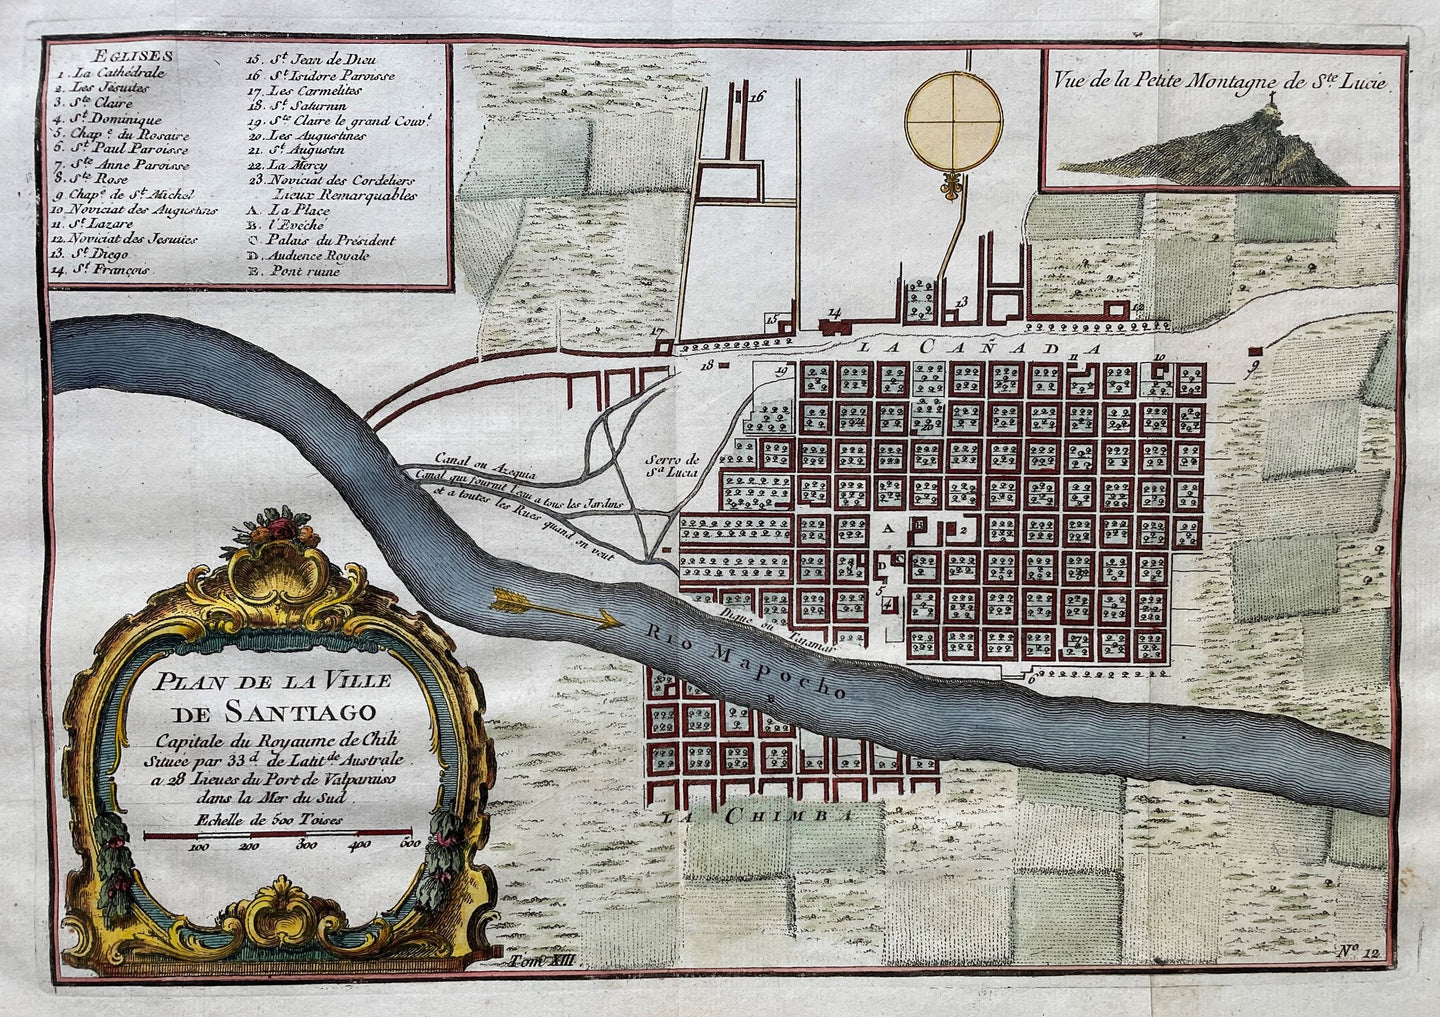 EGLISES
1. La Cathédrale
2. Les Jésuites
3. Ste Claire
4. St Dominique
5. Chap.e du Rosaire
6. St Paul Paroisse
7. Ste Anne Paroisse
8. Ste Rose
9 Chap.e de St Michel
10. Noviciat des Augustines
11. St Lazare
12. Noviciat des Jesuites
13. St Diego
14. St François
15. St Jean de Dieu
16 St Isidore Paroisse
17. Les Carmelites
18. St Saturnin
19. Ste Claire le grand Couv.t
20. Les Augustines
21. St Augustin
22. La Mercy
23. Noviciat des Cordeliers
Lieux Remarquables
A. La Place
B. l'Eveché
C. Palais du Président
D. Audience Royale
E. Pont ruine
Vue de la Petite Montagne de Ste Lucie.
16
15
14
13
12
17
18
19
LA CAÑADA
11
10
9
21
20
Serro de
Sa Lucia
Canal ou Azequia
Canal qui fournit l'eau a tous les Jardins
et a toutes les Rues quand on veut
A
B
2
D
5
4
Digue ou Tajamar
Rio Mapocho
6
LA CHIMBA
PLAN DE LA VILLE
DE SANTIAGO
Capitale du Royaume de Chili
Située par 33d de Latit.de Australe.
a 28 Lieues du Port de Valparaiso
dans la Mer du Sud.
Echelle de 500 Toises
100 200 300 400 500
Tome XIII.
No 12